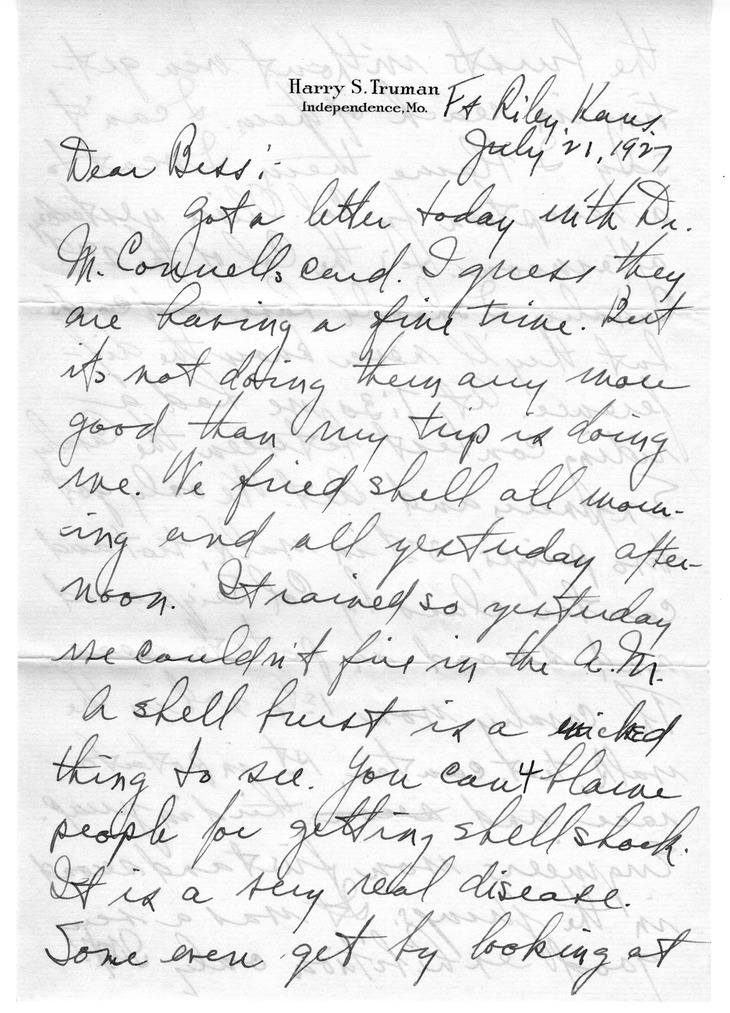 Harry S. Truman
Independence, Mo.
Ft Riley Kans.
July 21, 1927
Dear Bess:-
Got a letter today with Dr.
McConnells card. I guess they
are having a fine time. But
its not doing them any more
good than my trip is doing
me. We fired shell all morn-
ing and all yesterday after-
noon. It rained so yesterday
we couldn't fire in the A.M.
A shell burst is a wicked
thing to see. You can't blame
people for getting shell shock.
It is a very real disease.
Some even get by looking at